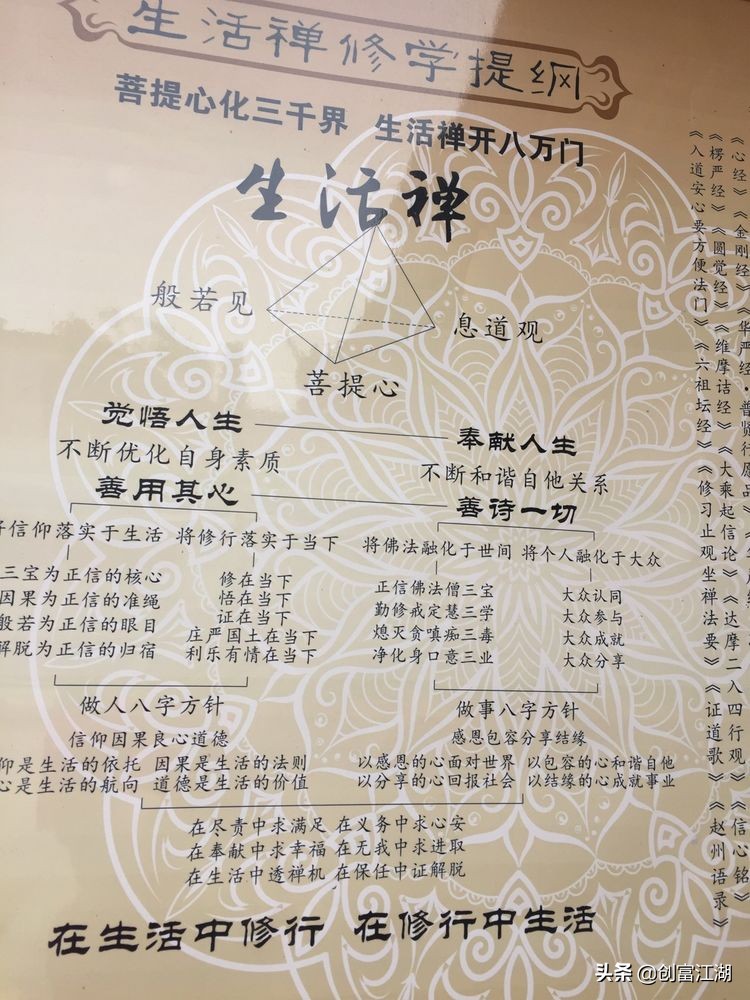 生活禅修学提纲
菩提心化三千界 生活禅开八万门
生活禅
般若见
息道观
菩提心
觉悟人生
奉献人生
不断优化自身素质
不断和谐自他关系
善用其心
善诗一切
信仰落实于生活 将修行落实于当下
将佛法融化于世间 将个人融化于大众
三宝为正信的核心
因果为正信的准绳
般若为正信的眼目
解脱为正信的归宿
修在当下
悟在当下
证在当下
庄严国土在当下
利乐有情在当下
正信佛法僧三宝
勤修戒定慧三学
熄灭贪嗔痴三毒
净化身口意三业
大众认同
大众参与
大众成就
大众分享
做人八字方针
信仰因果良心道德
仰是生活的依托 因果是生活的法则
心是生活的航向 道德是生活的价值
做事八字方针
感恩包容分享结缘
以感恩的心面对世界 以包容的心和谐自他
以分享的心回报社会 以结缘的心成就事业
在尽责中求满足 在义务中求心安
在奉献中求幸福 在无我中求进取
在生活中透禅机 在保任中证解脱
在生活中修行 在修行中生活
《心经》《金刚经》《华严经·普贤行愿品》
《楞严经》《圆觉经》《维摩诘经》《大乘起信论》《达摩二入四行观》《信心铭》
《入道安心要方便法门》《六祖坛经》《修习止观坐禅法要》《证道歌》《赵州语录》
头条 @创富江湖